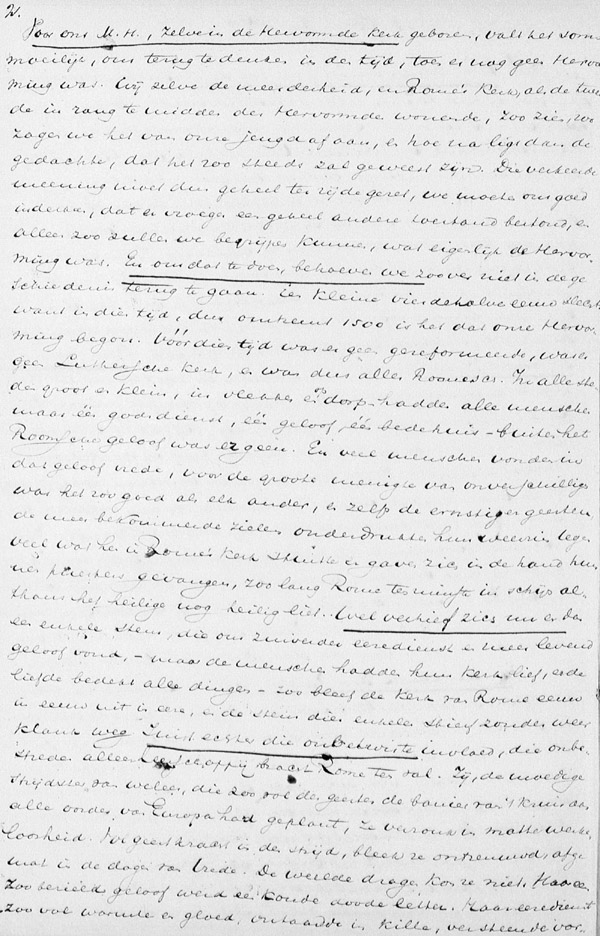 2.
Voor ons M.H., zelve in de Hervormde kerk geboren, valt het soms
moeilijk, ons terug te denken in den tijd, toen er nog geen Hervor-
ming was. Wij zelve de meerderheid, en Rome's Kerk, als de twee
de in rang te midden der Hervormden wonende, zoo zien, zoo
zagen we het van onze jeugd af aan, en hoe na ligt dan de
gedachte, dat het zoo steeds zal geweest zijn. Die verkeerde
meening moet dus geheel ter zijde gezet, we moeten ons goed
indenken, dat er vroeger een geheel andere toestand bestond, en
alleen zoo zullen we begrijpen kunnen, wat eigenlijk de Hervor-
ming was. En om dat te doen, behoeven we zoo ver niet in de ge
schiedenis terug te gaan. Een kleine vierdehalve eeuw slechts
want in dien tijd, dus omtrent 1500 is het dat onze Hervor
ming begon. Vóór dien tijd was er geen gereformeerde, was er
geen Luthersche kerk, er was dus alleen Roomsch. In alle ste-
den groot en klein, in vlekken en dorpen hadden alle menschen
maar één godsdienst, één geloof, één bedehuis - buiten het
Roomsche geloof was er geen. En veel menschen vonden in
dat geloof vrede, voor de groote menigte van onverschilligen
was het zoo goed als elk ander, en zelfs de ernstiger geesten,
de meer bekommerde zielen onderdrukten hun weerzin tegen
veel wat hen in Rome's kerk stuitte en gaven zich in de hand hun
ner priesters gevangen, zoo lang Rome ten minste in schijn al-
thans het heilige nog heilig liet. Wel verhief zich nu en dan
een enkele stem, die ons zuiverder eeredienst en meer levend
geloof vond, - maar de menschen hadden hun kerk lief, en de
liefde bedekt alle dingen - zoo bleef de kerk van Rome eeuw
in eeuw uit in eere, en de stem dier enkelen stierf zonder weer
klank weg. Juist echter die onbetwiste invloed, die onbe
streden alleenheerschappij bracht Rome ten val. Zij, de moedige
strijdster van weleer, die zoo vol des geestes de banier van 't kruis aan
alle oorden van Europa had geplant, ze verzonk in matte werke-
loosheid. Vol geestkracht in den strijd, bleek ze ontzenuwd, afge
mat in de dagen van vrede. De weelde dragen kon ze niet. Haar een
zoo bezield geloof werd een koude doode letter. Haar eeredienst
zoo vol warmte en gloed, ontaardde in kille, versteende vor-